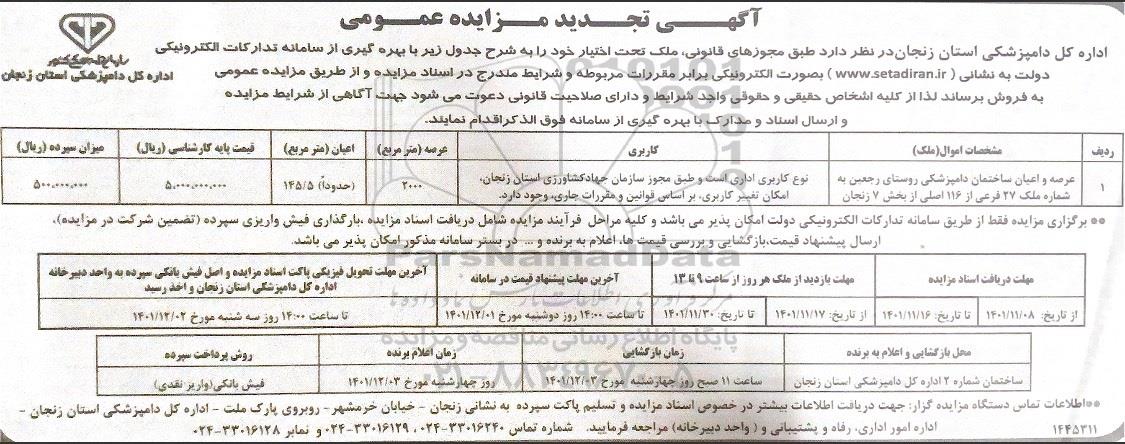 آگهـی تجـدید مـزایده عمـومی
سازمان دامپزشکی کشور
اداره کل دامپزشکی استان زنجان
اداره کل دامپزشکی استان زنجان در نظر دارد طبق مجوزهای قانونی، ملک تحت اختیار خود را به شرح جدول زیر با بهره گیری از سامانه تدارکات الکترونیکی
دولت به نشانی ( www.setadiran.ir ) بصورت الکترونیکی برابر مقررات مربوطه و شرایط مندرج در اسناد مزایده و از طریق مزایده عمومی
به فروش برساند لذا از کلیه اشخاص حقیقی و حقوقی واجد شرایط و دارای صلاحیت قانونی دعوت می شود جهت آگاهی از شرایط مزایده
و ارسال اسناد و مدارک با بهره گیری از سامانه فوق الذکر اقدام نمایند.
ردیف مشخصات اموال(ملک) کاربری عرصه (متر مربع) اعیان (متر مربع) قیمت پایه کارشناسی (ریال) میزان سپرده (ریال)
۱ عرصه و اعیان ساختمان دامپزشکی روستای رجعین به شماره ملک ۲۷ فرعی از ۱۱۶ اصلی از بخش ۷ زنجان نوع کاربری اداری است و طبق مجوز سازمان جهادکشاورزی استان زنجان، امکان تغییر کاربری، بر اساس قوانین و مقررات جاری، وجود دارد. ۲۰۰۰ (حدوداً) ۱۴۵/۵ ۵.۰۰۰.۰۰۰.۰۰۰ ۵۰۰.۰۰۰.۰۰۰
** برگزاری مزایده فقط از طریق سامانه تدارکات الکترونیکی دولت امکان پذیر می باشد و کلیه مراحل فرآیند مزایده شامل دریافت اسناد مزایده ،بارگذاری فیش واریزی سپرده (تضمین شرکت در مزایده)،
ارسال پیشنهاد قیمت،بازگشایی و بررسی قیمت ها، اعلام به برنده و ... در بستر سامانه مذکور امکان پذیر می باشد.
ParsNamadData
پایگاه اطلاع رسانی مناقصه و مزایده
۰۲۱-۸۸۳۴۹۶۷۰-۵
مهلت دریافت اسناد مزایده مهلت بازدید از ملک هر روز از ساعت ۹ تا ۱۳ آخرین مهلت پیشنهاد قیمت در سامانه آخرین مهلت تحویل فیزیکی پاکت اسناد مزایده و اصل فیش بانکی سپرده به واحد دبیرخانه اداره کل دامپزشکی استان زنجان و اخذ رسید
از تاریخ: ۱۴۰۱/۱۱/۰۸ تا تاریخ: ۱۴۰۱/۱۱/۱۶ از تاریخ: ۱۴۰۱/۱۱/۱۷ تا تاریخ: ۱۴۰۱/۱۱/۳۰ تا ساعت ۱۴:۰۰ روز دوشنبه مورخ ۱۴۰۱/۱۲/۰۱ تا ساعت ۱۴:۰۰ روز سه شنبه مورخ ۱۴۰۱/۱۲/۰۲
محل بازگشایی و اعلام به برنده زمان بازگشایی زمان اعلام برنده روش پرداخت سپرده
ساختمان شماره ۲ اداره کل دامپزشکی استان زنجان ساعت ۱۱ صبح روز چهارشنبه مورخ ۱۴۰۱/۱۲/۰۳ روز چهارشنبه مورخ ۱۴۰۱/۱۲/۰۳ فیش بانکی(واریز نقدی)
**اطلاعات تماس دستگاه مزایده گزار: جهت دریافت اطلاعات بیشتر در خصوص اسناد مزایده و تسلیم پاکت سپرده به نشانی زنجان - خیابان خرمشهر- روبروی پارک ملت - اداره کل دامپزشکی استان زنجان -
اداره امور اداری، رفاه و پشتیبانی و ( واحد دبیرخانه) مراجعه فرمایید. شماره تماس ۳۳۰۱۶۲۴۰-۰۲۴، ۳۳۰۱۶۱۲۹-۰۲۴ و نمابر ۳۳۰۱۶۱۲۸-۰۲۴
۱۴۴۵۳۱۱